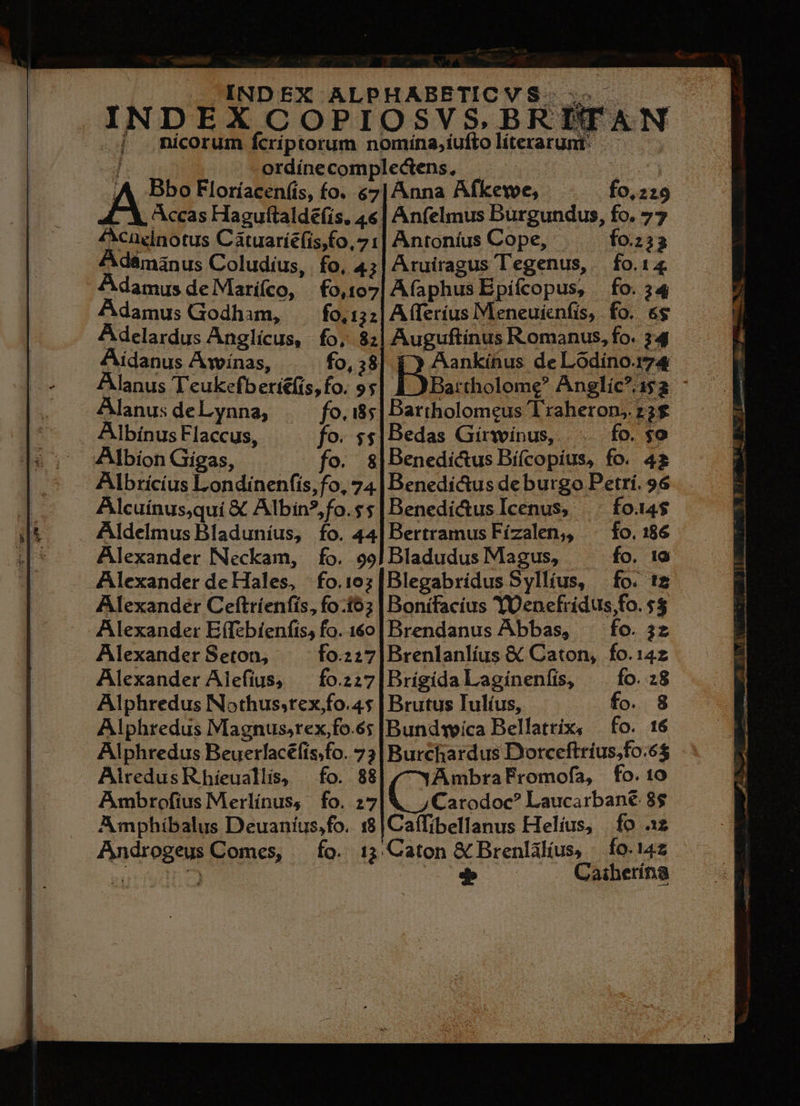 INDEX ALPHABETICVS.
INDEX COPIOSVS. BRITAN
nicorum ſcriptorum nomina,iuſto literarum
ordine complectens.
ABbo Floriacenſis, fo. 67
Accas Haguſtaldẽſis. 46
Acuelnotus Cãtuariẽſis,fo,71
Adãmánus Coludius, fo, 43
Adamus de Mariſco, fo,107
Adamus Godham, fo,132
Adelardus Anglicus, fo, 82
Aidanus Awinas, fo,38
Alanus Teukeſberiẽſis,fo. 95
Alanus de Lynna, fo,185
Albinus Flaccus, fo. 55
Albion Gigas, fo. 8
Albricius Londinenſis,fo, 74
Alcuinus,qui & Albin⁹,fo.55
Aldelmus Bladunius, fo. 44
Alexander Neckam, fo. 99
Alexander de Hales, fo.103
Alexander Ceſtrienſis, fo.103
Alexander Eſſebienſis, fo. 160
Alexander Seton, fo.227
Alexander Aleſius, fo.227
Alphredus Nothus,rex,fo.45
Alphredus Magnus,rex,fo.65
Alphredus Beuerlacẽſis,fo. 73
Alredus Rhieuallis, fo. 88
Ambroſius Merlinus, fo. 27
Amphibalus Deuanius,fo. 18
Androgeus Comes, fo. 13
Anna Aſkewe, fo,229
Anſelmus Burgundus, fo. 77
Antonius Cope, fo.233
Aruiragus Tegenus, fo.14
Aſaphus Epiſcopus, fo. 34
Aſſerius Meneuienſis, fo. 65
Auguſtinus Romanus, fo. 34
BAankinus de Lõdino.174
Bartholome⁹ Anglic⁹.152
Bartholomeus Traheron,. 235
Bedas Girwinus, fo. 50
Benedictus Biſcopius, fo. 43
Benedictus de burgo Petri. 96
Benedictus Icenus, fo.145
Bertramus Fizalen,, fo, 186
Bladudus Magus, fo. 10
Blegabridus Syllius, fo. 12
Bonifacius VVenefridus,fo. 53
Brendanus Abbas, fo. 32
Brenlanlius & Caton, fo.142
Brigida Laginenſis, fo. 28
Brutus Iulius, fo. 8
Bundwica Bellatrix, fo. 16
Burchardus Dorceſtrius,fo.63
CAmbra Fromoſa, fo. 10
Carodoc⁹ Laucarbanẽ 85
Caſſibellanus Helius, fo 12
Caton & Brenlãlius, fo.142
Catherina